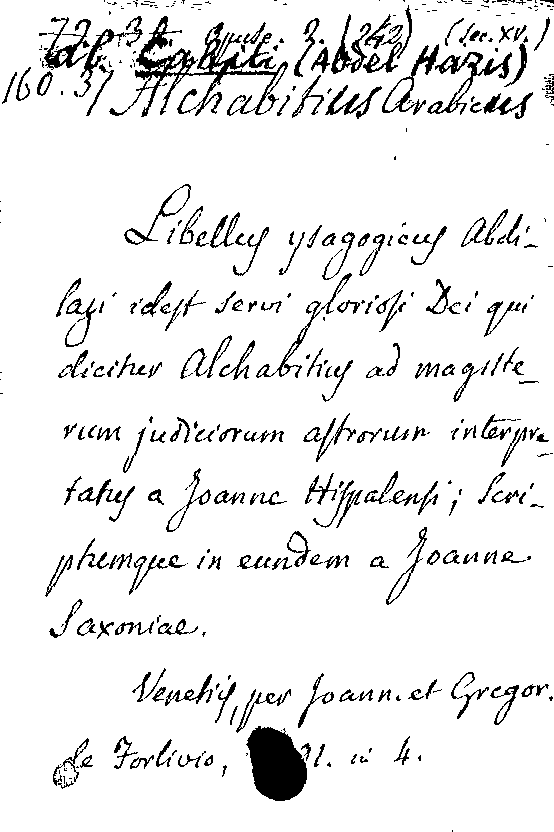 72. 37 opusc. 2. (242) (sec. XV.)
al. Cabiti (Abdel Hazis)
160.37 Alchabitius Arabicus
Libellus ysagogicus Abdi-
lazi idest servi gloriosi Dei qui
dicitur Alchabitius ad magiste-
rium judiciorum astrorum interpre-
tatus a Joanne Hispalensi; scri-
ptumque in eundem a Joanne
Saxoniae.
Venetiis, per Joann. et Gregor.
de Forlivio, 91. in 4.